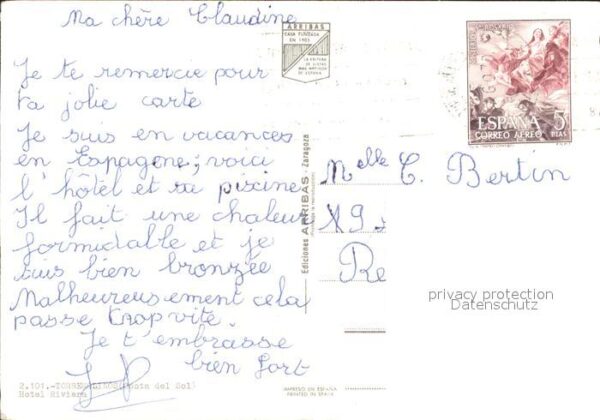 Ma chère Claudine
Je te remercie pour
ta jolie carte
Je suis en vacances
en Espagne; voici
l'hôtel et sa piscine
Il fait une chaleur
formidable et je
suis bien bronzée
Malheureusement cela
passe trop vite.
Je t'embrasse
bien fort
2.101.-TORREMOLINOS (Costa del Sol)
Hotel Riviera
ARRIBAS
CASA FUNDADA
EN 1905
Ediciones ARRIBAS - Zaragoza
IMPRESO EN ESPAÑA
PRINTED IN SPAIN
ESPAÑA 5
CORREO AEREO PTAS
Melle C. Bertin
19
Re
privacy protection
Datenschutz